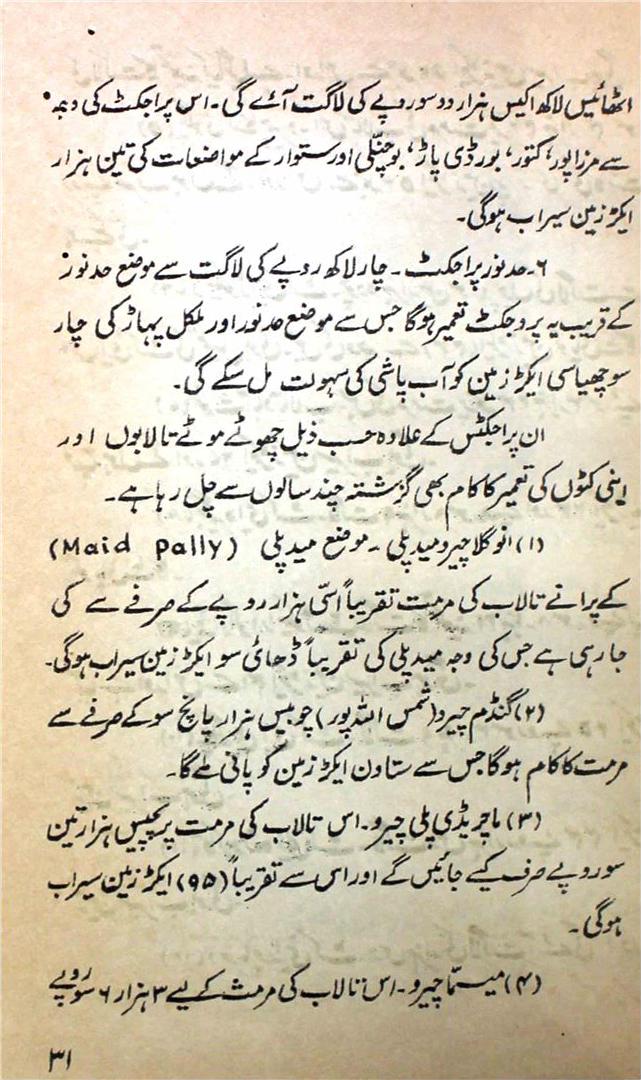 اٹھائیس لاکھ اکیس ہزار دو سو روپے کی لاگت آئے گی۔ اس پراجکٹ کی وجہ
سے مرزاپور، کتور، بورڈی پاڑ، بوچنلّی اور ستوار کے مواضعات کی تین ہزار
ایکڑ زمین سیراب ہوگی۔
۶۔ حدنور پراجکٹ ۔ چار لاکھ روپے کی لاگت سے موضع حدنور
کے قریب یہ پروجکٹ تعمیر ہوگا جس سے موضع حدنور اور ملکل پہاڑ کی چار
سو چھیاسی ایکڑ زمین کو آب پاشی کی سہولت مل سکے گی۔
ان پراجکٹس کے علاوہ حسب ذیل چھوٹے موٹے تالابوں اور
اپنی کٹوں کی تعمیر کا کام بھی گزشتہ چند سالوں سے چل رہا ہے۔
(۱) انوگلا چیرو میدپلی ۔ موضع میدپلی (Maid Pally)
کے پرانے تالاب کی مرمت تقریباً اسّی ہزار روپے کے صرفے سے کی
جا رہی ہے جس کی وجہ میدپلی کی تقریباً ڈھائی سو ایکڑ زمین سیراب ہوگی۔
(۲) گنڈم چیرو (شمس اللہ پور) چوبیس ہزار پانچ سو کے صرفے سے
مرمت کا کام ہوگا جس سے ستاون ایکڑ زمین کو پانی ملے گا۔
(۳) ماچریڈی پلی چیرو ۔ اس تالاب کی مرمت پر پچیس ہزار تین
سو روپے صرف کیے جائیں گے اور اس سے تقریباً (۹۵) ایکڑ زمین سیراب
ہوگی۔
(۴) میسمّا چیرو ۔ اس تالاب کی مرمت کے لیے ۳ ہزار ۶ سو روپے
۳۱